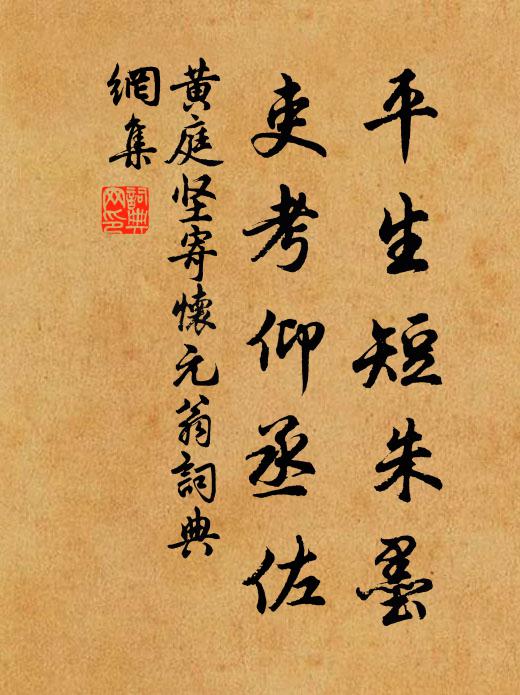 平生短朱墨
吏考仰丞佐
黄庭坚寄懷元翁詞典
網集
詞典
网印